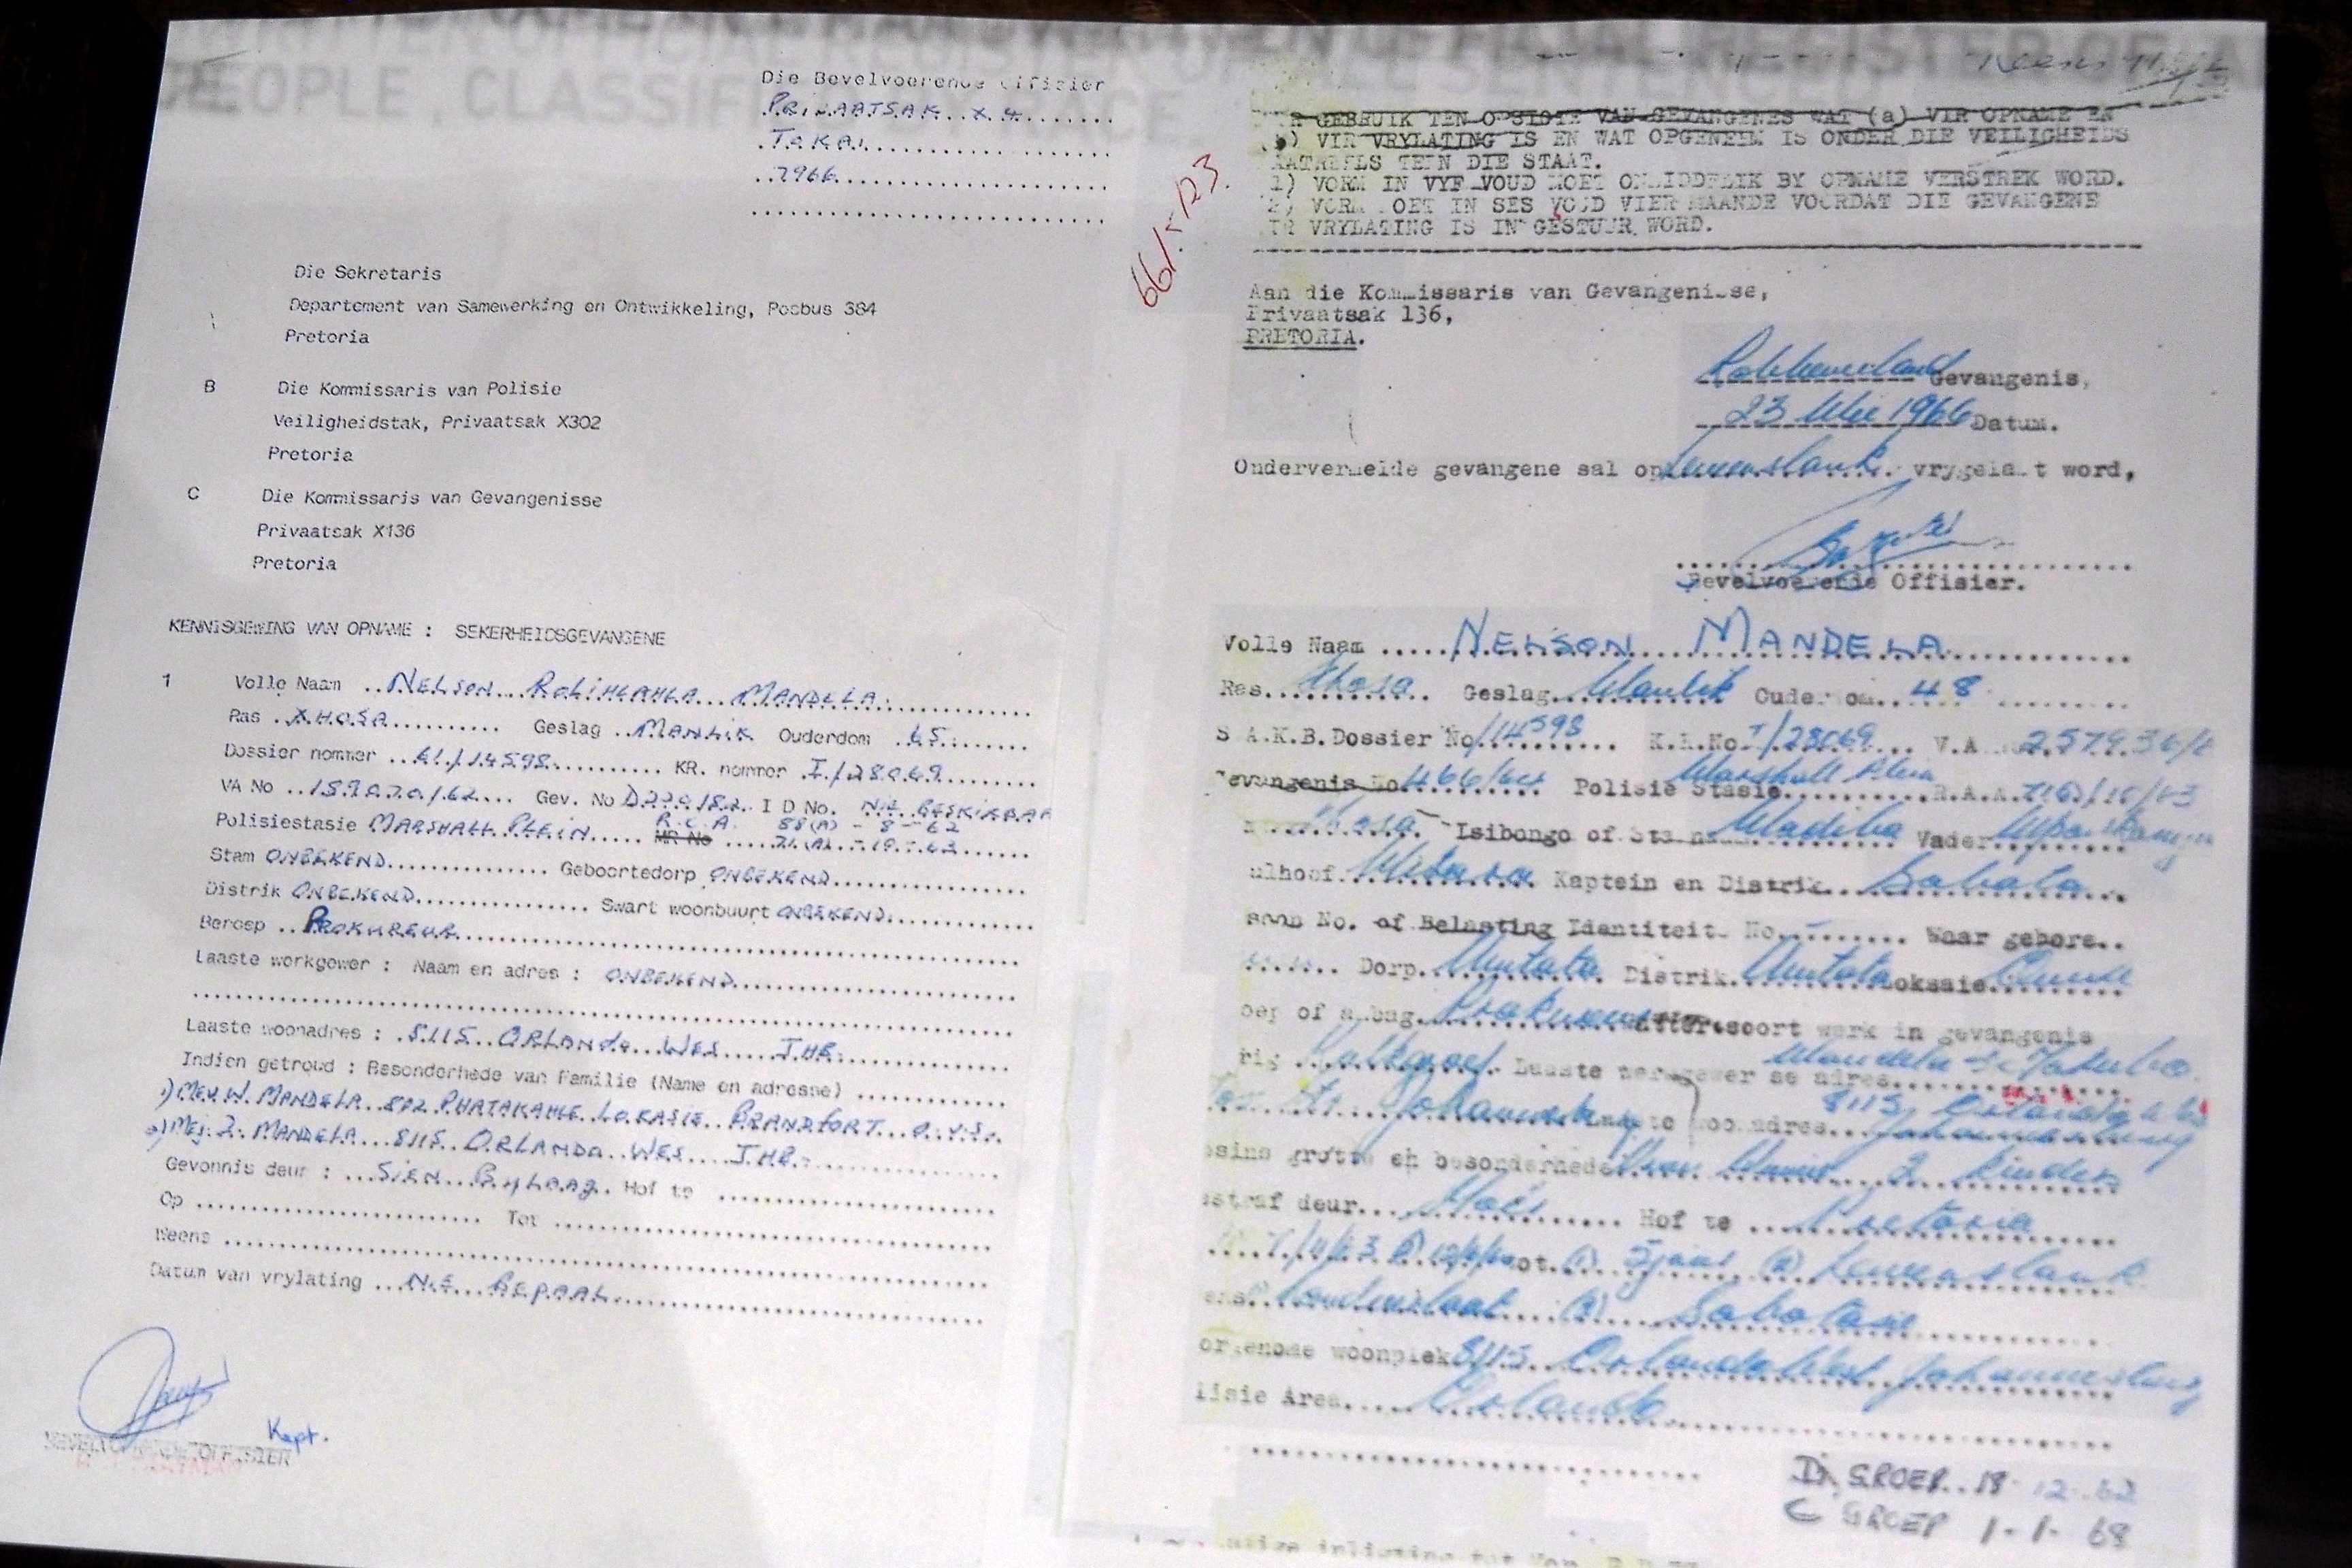 PEOPLE, CLASSIF
Die Bevelvoerende Offisier
PRIVAATSAK X 4
TOKAI
7966
Die Sekretaris
Departement van Samewerking en Ontwikkeling, Posbus 384
Pretoria
B Die Kommissaris van Polisie
Veiligheidstak, Privaatsak X302
Pretoria
C Die Kommissaris van Gevangenisse
Privaatsak X136
Pretoria
KENNISGEWING VAN OPNAME : SEKERHEIDSGEVANGENE
1 Volle Naam ..NELSON...ROLIHLAHLA...MANDELA
Ras ..XHOSA.......... Geslag ..MANLIK Ouderdom ..65
Dossier nommer ..61/14598.......... KR. nommer .I/28069
VA No ..159070/62.... Gev. No D220/82. I D No. NIE BESKIKBAAR
R.C.A. 88(A) - 8 - 62
Polisiestasie MARSHALL PLEIN..... MR No .....71.(A).-.10.-.63
Stam ONBEKEND............... Geboortedorp ONBEKEND
Distrik ONBEKEND............... Swart woonbuurt ONBEKEND
Beroep ..PROKUREUR
Laaste werkgewer : Naam en adres : ONBEKEND
Laaste woonadres : .8115..ORLANDO..WES....JHB.
Indien getroud : Besonderhede van Familie (Name en adresse)
1) MEV. W. MANDELA..802 PHATAKAHLE LOKASIE BRANDFORT...O.V.S.
2) MEJ. Z. MANDELA...8115..ORLANDO..WES....JHB.
Gevonnis deur : ...SIEN...BYLAAG. Hof te
Op ............... Tot
Weens
Datum van vrylating ...NIE...BEPAAL
Kapt.
BEVELVOERENDE OFFISIER
661/5/123.
R GEBRUIK TEN OPSIGTE VAN GEVANGENES WAT (a) VIR OPNAME EN
b) VIR VRYLATING IS EN WAT OPGENEEM IS ONDER DIE VEILIGHEIDS
MATREËLS TEEN DIE STAAT.
1) VORM IN VYF VOUD MOET ONMIDDELIK BY OPNAME VERSTREK WORD.
2) VORM MOET IN SES VOUD VIER MAANDE VOORDAT DIE GEVANGENE
VIR VRYLATING IS IN GESTUUR WORD.
Aan die Kommissaris van Gevangenisse,
Privaatsak 136,
PRETORIA.
Robbeneiland Gevangenis,
23 Mei 1966 Datum.
Ondervermelde gevangene sal op Lewenslank vrygelaat word,
Bevelvoerende Offisier.
Volle Naam .....NELSON MANDELA
Ras..Xhosa.. Geslag..Manlik Ouderdom..48
S.A.K.B. Dossier No/14598... K.R.No I/28069... V.A 2579.36/6
Gevangenis No.466/64.... Polisie Stasie Marshall Plein
Xhosa Isibongo of Stam Madiba Vader
ulhoof. Kaptein en Distrik..Sabata
soon No. of Belasting Identiteit No. - ....... Waar gebore..
Dorp. Umtata Distrik. Umtata Loksasie. Qunu
oep of ambag. Prokureur soort werk in gevangenis
rig Kalkgroef. Laaste werkgewer se adres Mandela & Tambo
Johannesburg Laaste woonadres. 8115 Orlando West Johannesburg
esins grotte en besonderhede Mev. Winnie. 2 kinders
estraf deur. Hof te ....Pretoria
7/11/63 (2) 12/6/64 tot. (1) 5 jaar (2) Lewenslank
(2) Sabotasie
orgenome woonplek 8115. Orlando West Johannesburg
lisie Area..... Orlando
D. GROEP. 18 - 12 - 62
C GROEP 1-1-68